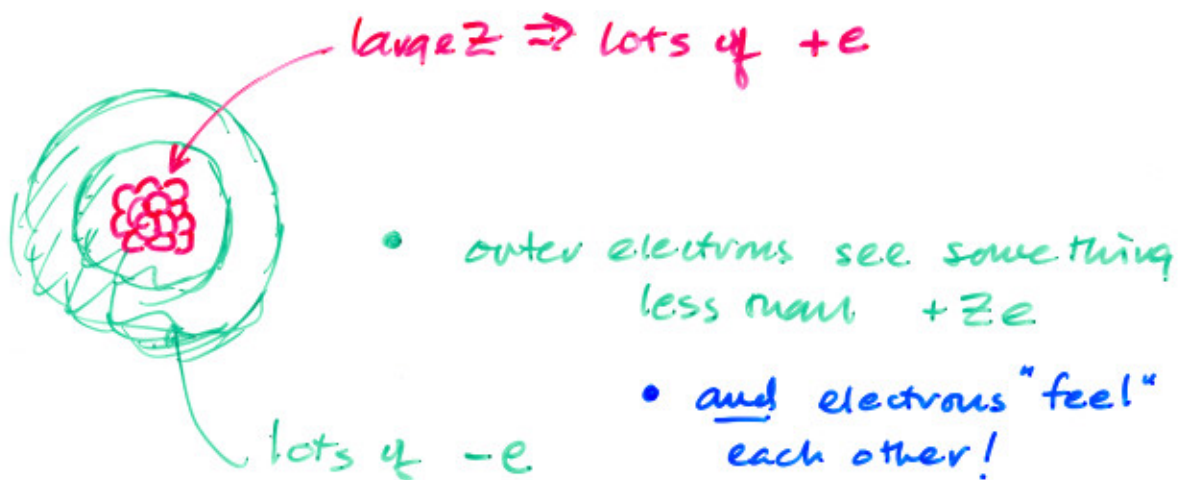 large Z ⇒ lots of +e
• outer electrons see something
less than +Ze
• and electrons "feel"
each other!
lots of -e